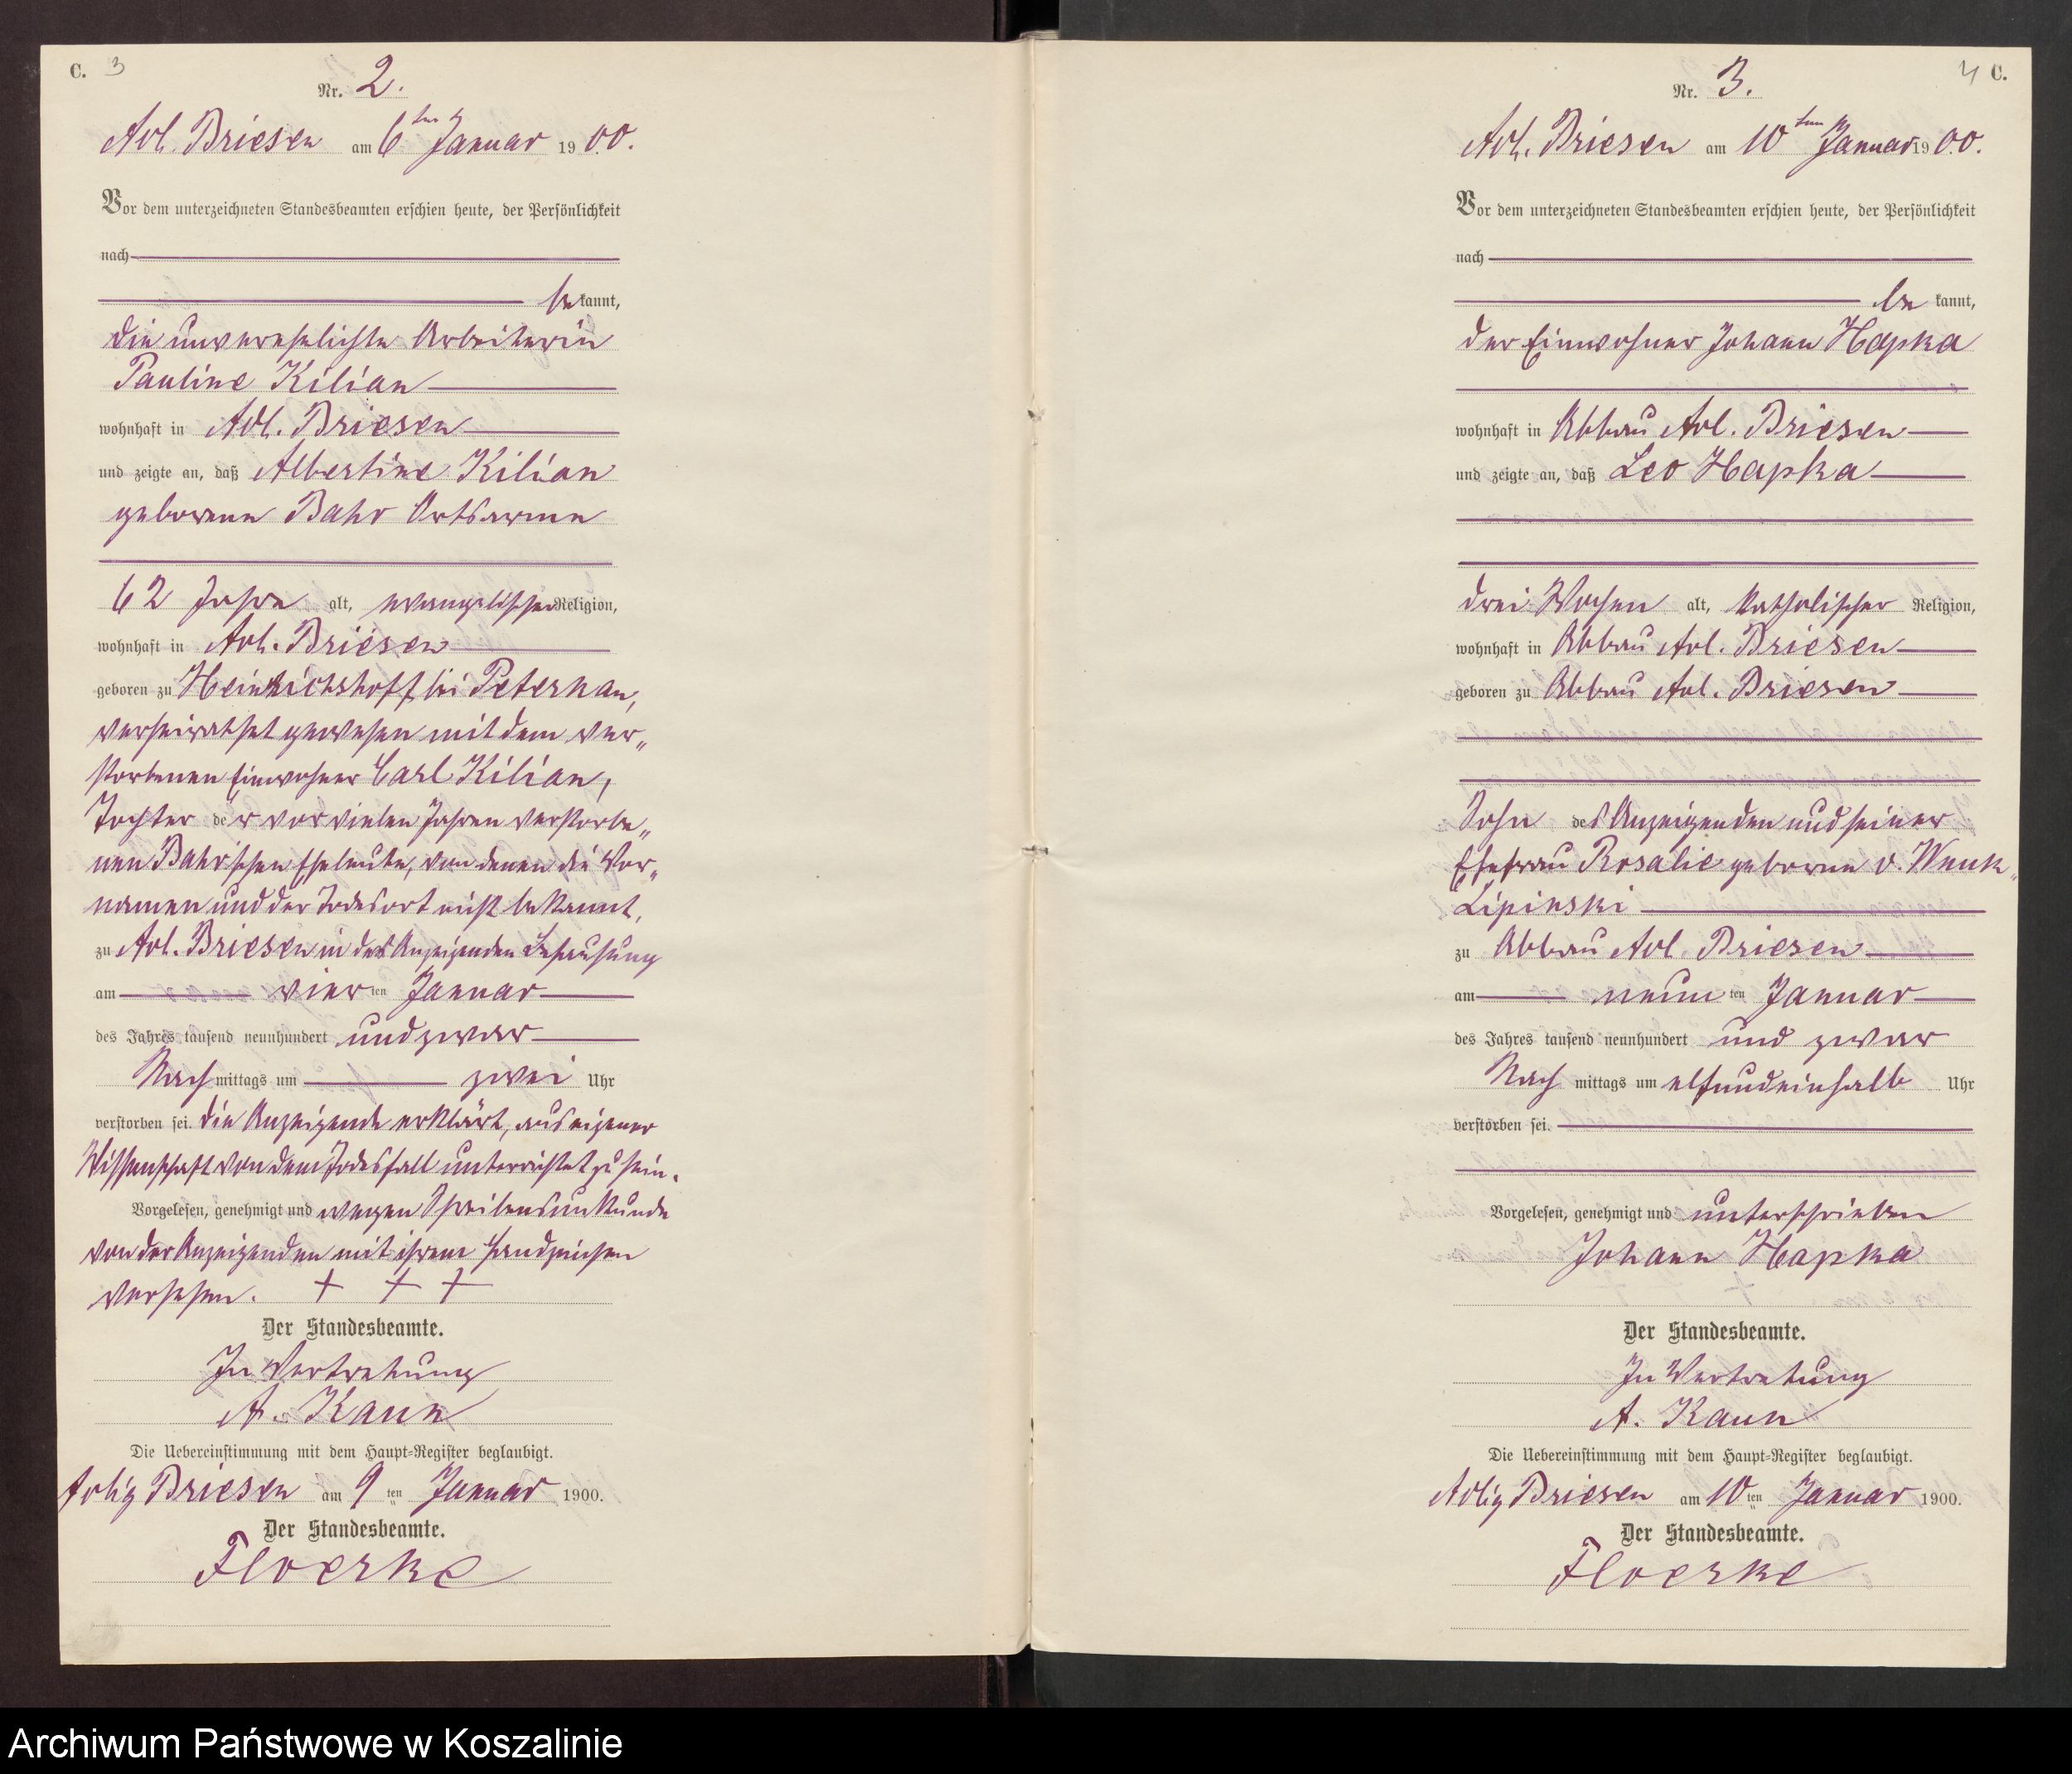 C. 3
Nr. 2.
Adl. Briesen am 6ten Januar 1900.
Vor dem unterzeichneten Standesbeamten erschien heute, der Persönlichkeit
nach
bekannt,
die unverehelichte Arbeiterin
Pauline Kilian
wohnhaft in Adl. Briesen
und zeigte an, daß Albertine Kilian
geborene Bahr Ortsarme
62 Jahre alt, evangelischer Religion,
wohnhaft in Adl. Briesen
geboren zu Heinrichshoff bei Peterkau,
verheirathet gewesen mit dem ver„
storbenen Einwohner Carl Kilian,
Tochter der vor vielen Jahren verstorbe„
nen Bahr'schen Eheleute, von denen die Vor„
namen und der Todesort nicht bekannt,
zu Adl. Briesen in der Anzeigenden Behausung
am vierten Januar
des Jahres tausend neunhundert und zwar
Nachmittags um zwei Uhr
verstorben sei. Die Anzeigende erklärt, aus eigener
Wissenschaft von dem Todesfall unterrichtet zu sein.
Vorgelesen, genehmigt und wegen Schreibensunkunde
von der Anzeigenden mit ihrem Handzeichen
versehen. + + +
Der Standesbeamte.
In Vertretung
A. Kaun
Die Uebereinstimmung mit dem Haupt-Register beglaubigt.
Adlig Briesen am 9ten Januar 1900.
Der Standesbeamte.
Floerke
4 C.
Nr. 3.
Adl. Briesen am 10ten Januar 1900.
Vor dem unterzeichneten Standesbeamten erschien heute, der Persönlichkeit
nach
be kannt,
der Einwohner Johann Hapka
wohnhaft in Abbau Adl. Briesen
und zeigte an, daß Leo Hapka
drei Wochen alt, katholischer Religion,
wohnhaft in Abbau Adl. Briesen
geboren zu Abbau Adl. Briesen
Sohn des Anzeigenden und seiner
Ehefrau Rosalie geborene v. Wnuk„
Lipinski
zu Abbau Adl. Briesen
am neunten Januar
des Jahres tausend neunhundert und zwar
Nach mittags um elfundeinhalb Uhr
verstorben sei.
Vorgelesen, genehmigt und unterschrieben
Johann Hapka
Der Standesbeamte.
In Vertretung
A. Kaun
Die Uebereinstimmung mit dem Haupt-Register beglaubigt.
Adlig Briesen am 10ten Januar 1900.
Der Standesbeamte.
Floerke
Archiwum Państwowe w Koszalinie